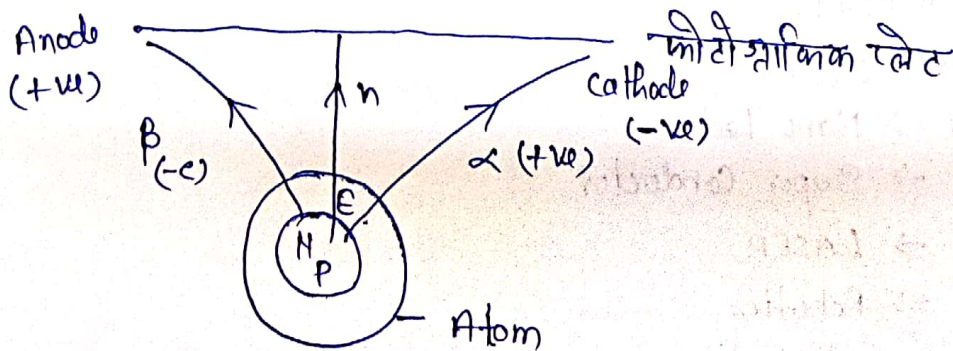 Anode
(+ve)
फोटोग्राफिक प्लेट
Cathode
(-ve)
n
β
(-e)
α (+ve)
E
N
P
Atom